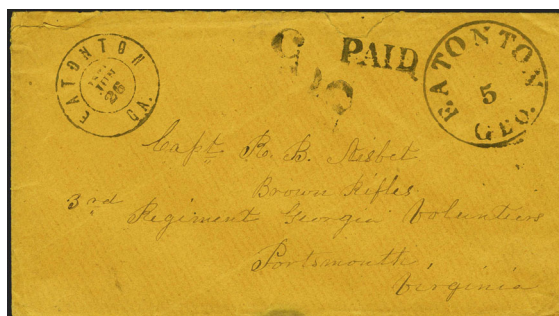 EATONTON GA.
JUN
26
PAID
EATONTON GEO.
5
Capt. R. B. Nisbet
Brown Rifles
3rd Regiment Georgia Volunteers
Portsmouth,
Virginia